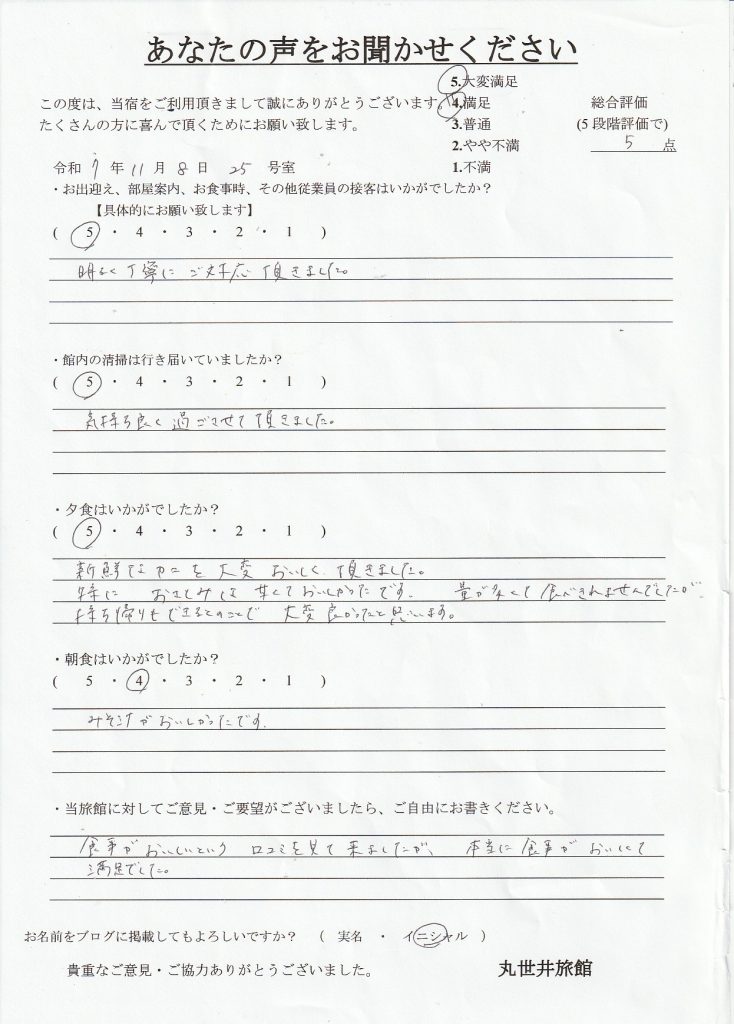 あなたの声をお聞かせください
5.大変満足
この度は、当宿をご利用頂きまして誠にありがとうございます。
4.満足
総合評価
たくさんの方に喜んで頂くためにお願い致します。
3.普通
(5段階評価で)
2.やや不満
5 点
令和 7 年 11 月 8 日 25 号室
1.不満
・お出迎え、部屋案内、お食事時、その他従業員の接客はいかがでしたか？
【具体的にお願い致します】
( 5 ・ 4 ・ 3 ・ 2 ・ 1 )
明るく丁寧に ご対応 頂きました。
・館内の清掃は行き届いていましたか？
( 5 ・ 4 ・ 3 ・ 2 ・ 1 )
気持ち良く 過ごさせて 頂きました。
・夕食はいかがでしたか？
( 5 ・ 4 ・ 3 ・ 2 ・ 1 )
新鮮なカニを 大変 おいしく 頂きました。
特に おさしみは 甘くておいしかったです。 量が多くて食べきれませんでしたが
持ち帰りもできるとのことで 大変良かったと思います。
・朝食はいかがでしたか？
( 5 ・ 4 ・ 3 ・ 2 ・ 1 )
みそ汁がおいしかったです。
・当旅館に対してご意見・ご要望がございましたら、ご自由にお書きください。
食事がおいしいという 口コミを見て来ましたが、 本当に食事がおいしくて
満足でした。
お名前をブログに掲載してもよろしいですか？ （ 実名 ・ イニシャル ）
貴重なご意見・ご協力ありがとうございました。
丸世井旅館